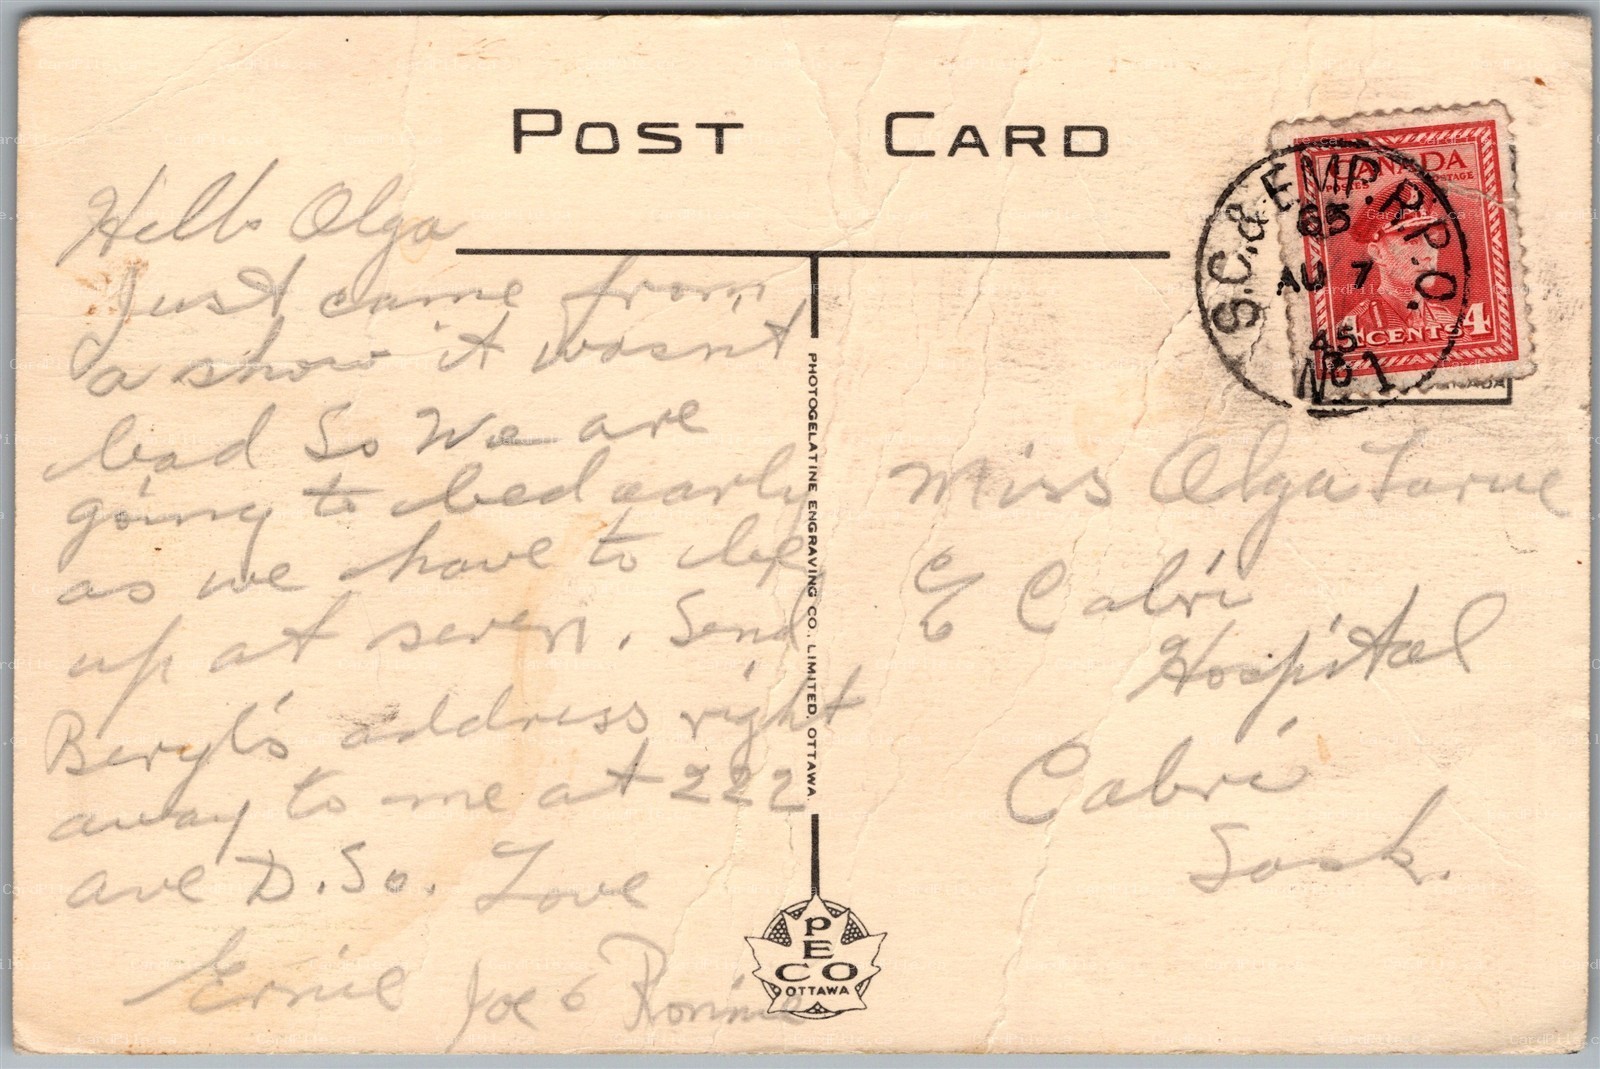 POST CARD
Hello Olga
Just came from
a show it wasn't
bad So We are
going to bed early
as we have to be
up at seven. Send
Beryl's address right
away to me at 222
ave D. So. Love
Ernie Joe & Ronnie
PHOTOGELATINE ENGRAVING CO., LIMITED, OTTAWA.
PECO
OTTAWA
CANADA
POSTES POSTAGE
4 CENTS 4
S.C. & EMP. R.P.O.
AU 7
45
NO 1
Miss Olga
c/o Cabri
Hospital
Cabri
Sask.